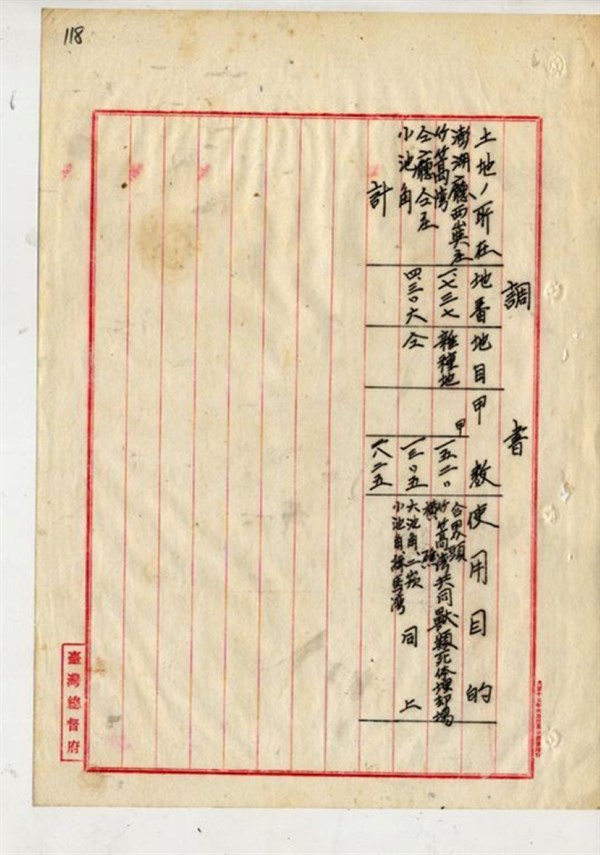 118
調書
土地ノ所在 地番 地目 甲數 使用目的
澎湖廳西嶼庄
竹篙灣 一、七三七 雜種地 甲 、五二〇
合界頭
竹篙灣
橫礁
共同獸類死体埋却場
仝廳仝庄
小池角 四、三〇六 仝 一三〇五
大池角、二崁
小池角、緝馬灣
同上
計 一八二五
臺灣總督府